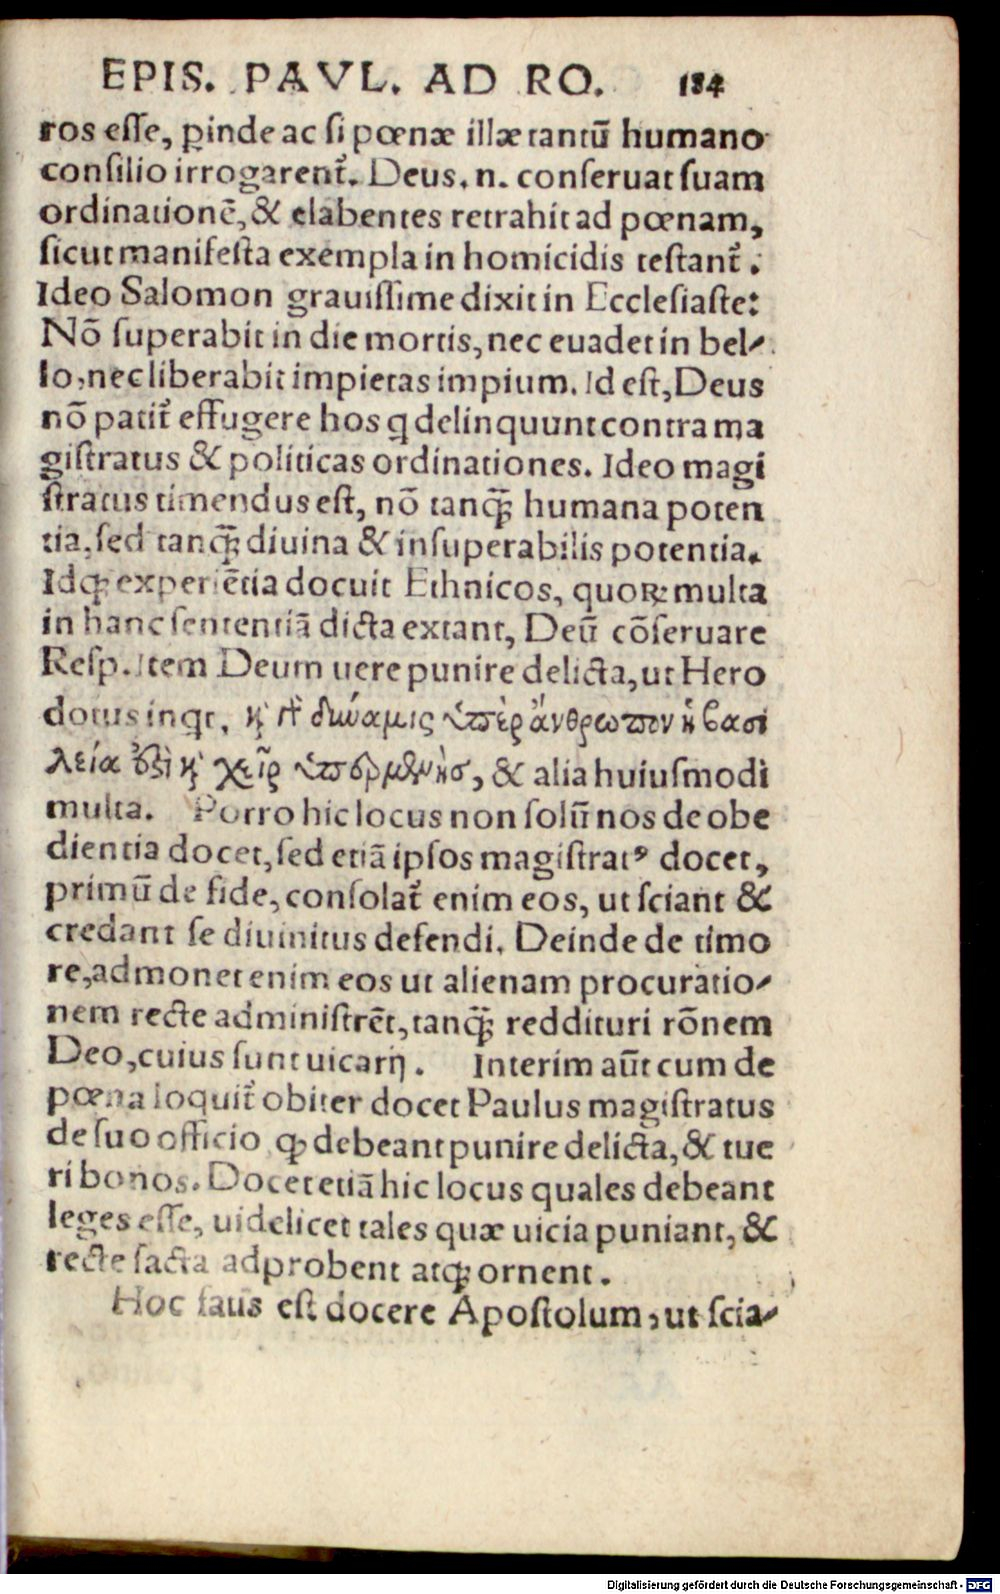 EPIS. PAVL. AD RO. 184
ros eſſe, ꝑinde ac ſi pœnæ illæ tantū humano
conſilio irrogarent᷑. Deus. n. conſeruat ſuam
ordinationē, & elabentes retrahit ad pœnam,
ſicut manifeſta exempla in homicidis teſtant᷑.
Ideo Salomon grauiſſime dixit in Eccleſiaſte:
Nō ſuperabit in die mortis, nec euadet in bel-
lo, nec liberabit impietas impium. Id eſt, Deus
nō patit᷑ effugere hos q delinquunt contra ma
giſtratus & politicas ordinationes. Ideo magi
ſtratus timendus eſt, nō tanꝙ̄ humana poten
tia, ſed tanꝙ̄ diuina & inſuperabilis potentia.
Idꝙ experiētia docuit Ethnicos, quoꝝ multa
in hanc ſententiā dicta extant, Deū cōſeruare
Reſp. Item Deum uere punire delicta, ut Hero
dotus inqt, ϗ γὸ δύναμις ὑπὲρ ἄνθρωπον ἡ βασι
λεία ὅξὶ ϗ χεῖρ ὑπερμήκησ, & alia huiuſmodi
multa. Porro hic locus non ſolū nos de obe
dientia docet, ſed etiā ipſos magiſtratꝰ docet,
primū de fide, conſolat᷑ enim eos, ut ſciant &
credant ſe diuinitus defendi. Deinde de timo
re, admonet enim eos ut alienam procuratio-
nem recte adminiſtrēt, tanꝙ̄ reddituri rōnem
Deo, cuius ſunt uicarij. Interim aūt cum de
pœna loquit᷑ obiter docet Paulus magiſtratus
de ſuo officio ꝙ debeant punire delicta, & tue
ri bonos. Docet etiā hic locus quales debeant
leges eſſe, uidelicet tales quæ uicia puniant, &
recte facta adprobent atꝙ ornent.
Hoc ſatis eſt docere Apoſtolum, ut ſcia-
Digitalisierung gefördert durch die Deutsche Forschungsgemeinschaft - DFG